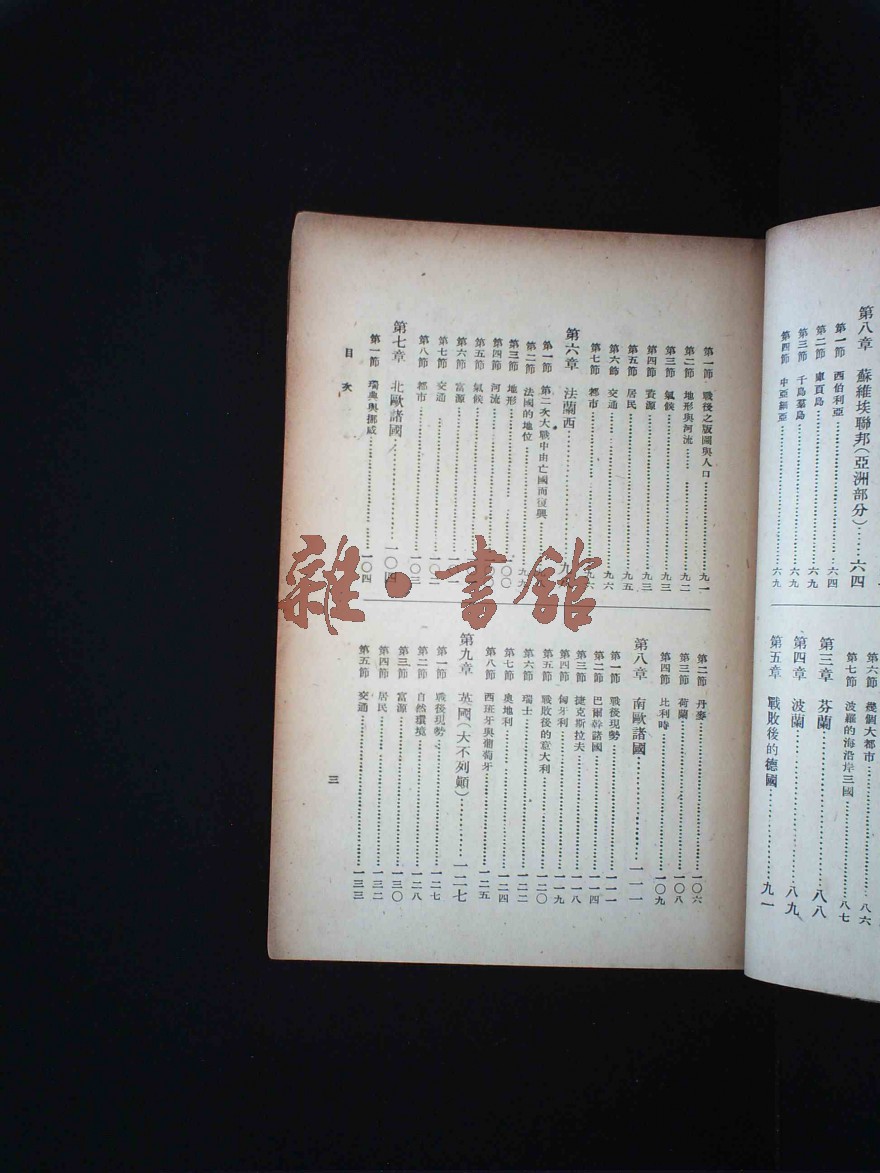 第八章 蘇維埃聯邦(亞洲部分)……六四
第一節 西伯利亞……六四
第二節 庫頁島……六九
第三節 千島羣島……六九
第四節 中亞細亞……六九
第六節 幾個大都市……八六
第七節 波羅的海沿岸三國……八七
第三章 芬蘭……八八
第四章 波蘭……八九
第五章 戰敗後的德國……九一
第一節 戰後之版圖與人口……九一
第二節 地形與河流……九二
第三節 氣候……九三
第四節 資源……九三
第五節 居民……九五
第六節 交通……九六
第七節 都市……九六
第六章 法蘭西……九
第一節 第二次大戰中由亡國而復興
第二節 法國的地位……九九
第三節 地形……一〇〇
第四節 河流
第五節 氣候
第六節 富源
第七節 交通……一〇二
第八節 都市……一〇三
第七章 北歐諸國……一〇四
第一節 瑞典與挪威……一〇四
目次
第二節 丹麥……一〇六
第三節 荷蘭……一〇八
第四節 比利時……一〇九
第八章 南歐諸國……一一一
第一節 戰後現勢……一一一
第二節 巴爾幹諸國……一一四
第三節 捷克斯拉夫……一一八
第四節 匈牙利……一一九
第五節 戰敗後的意大利……一二〇
第六節 瑞士……一二二
第七節 奧地利……一二四
第八節 西班牙與葡萄牙……一二五
第九章 英國(大不列顛)……一二七
第一節 戰後現勢……一二七
第二節 自然環境……一二八
第三節 富源……一三〇
第四節 居民……一三二
第五節 交通……一三三
三
雜·書館